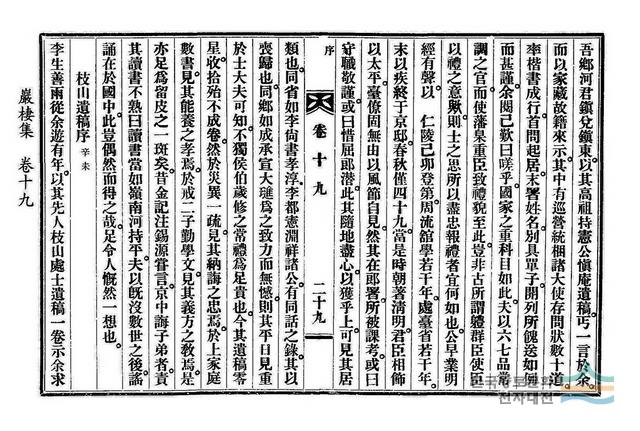 吾鄉河君鎭兌鎭東以其高祖持憲公愼庵遺稿丐一言於余
而以家藏故籍來示其中有巡營統梱諸大使存問狀數十道
率楷書成行首問起居末署姓名別具單子開列所餽送如例
而甚謹余閱已歎曰嗟乎國家之重科目如此夫以六七品常
調之官而使藩臬重臣致禮貌至此豈非古所謂體群臣使臣
以禮之意歟則士之思所以盡忠報禮者宜何如也公早業明
經有聲以 仁陵己卯登第周流舘學若干年處臺省若干年
末以疾終于京邸春秋僅四十九當是時朝著淸明君臣相飾
以太平臺僚固無由以風節自見然其在郞署所被課考或曰
守職敬謹或曰惜屈郞潛此其隨地盡心以獲乎上可見其居
序
卷十九
二十九
類也同省如李尙書孝淳李都憲淵祥諸公有同話之錄其以
喪歸也同鄕如成承宣大璡爲之致力而無憾則其平日見重
於士大夫可知不獨侯伯歲修之常禮爲足貴也今其遺稿零
星收拾殆不成卷然於災異一疏見其納誨之忠焉於上家庭
數書見其能養之孝焉於戒二子勤學文見其義方之敎焉是
亦足爲留皮之一斑矣昔金記注錫源嘗言京中誨子弟者責
其讀書不熟曰讀書當如嶺南河持平夫以旣沒數世之後謠
誦在於國中此豈偶然而得之哉足令人慨然一想也
枝山遺稿序 辛未
李生善兩從余遊有年以其先人枝山處士遺稿一卷示余求
巖棲集 卷十九
전자대전